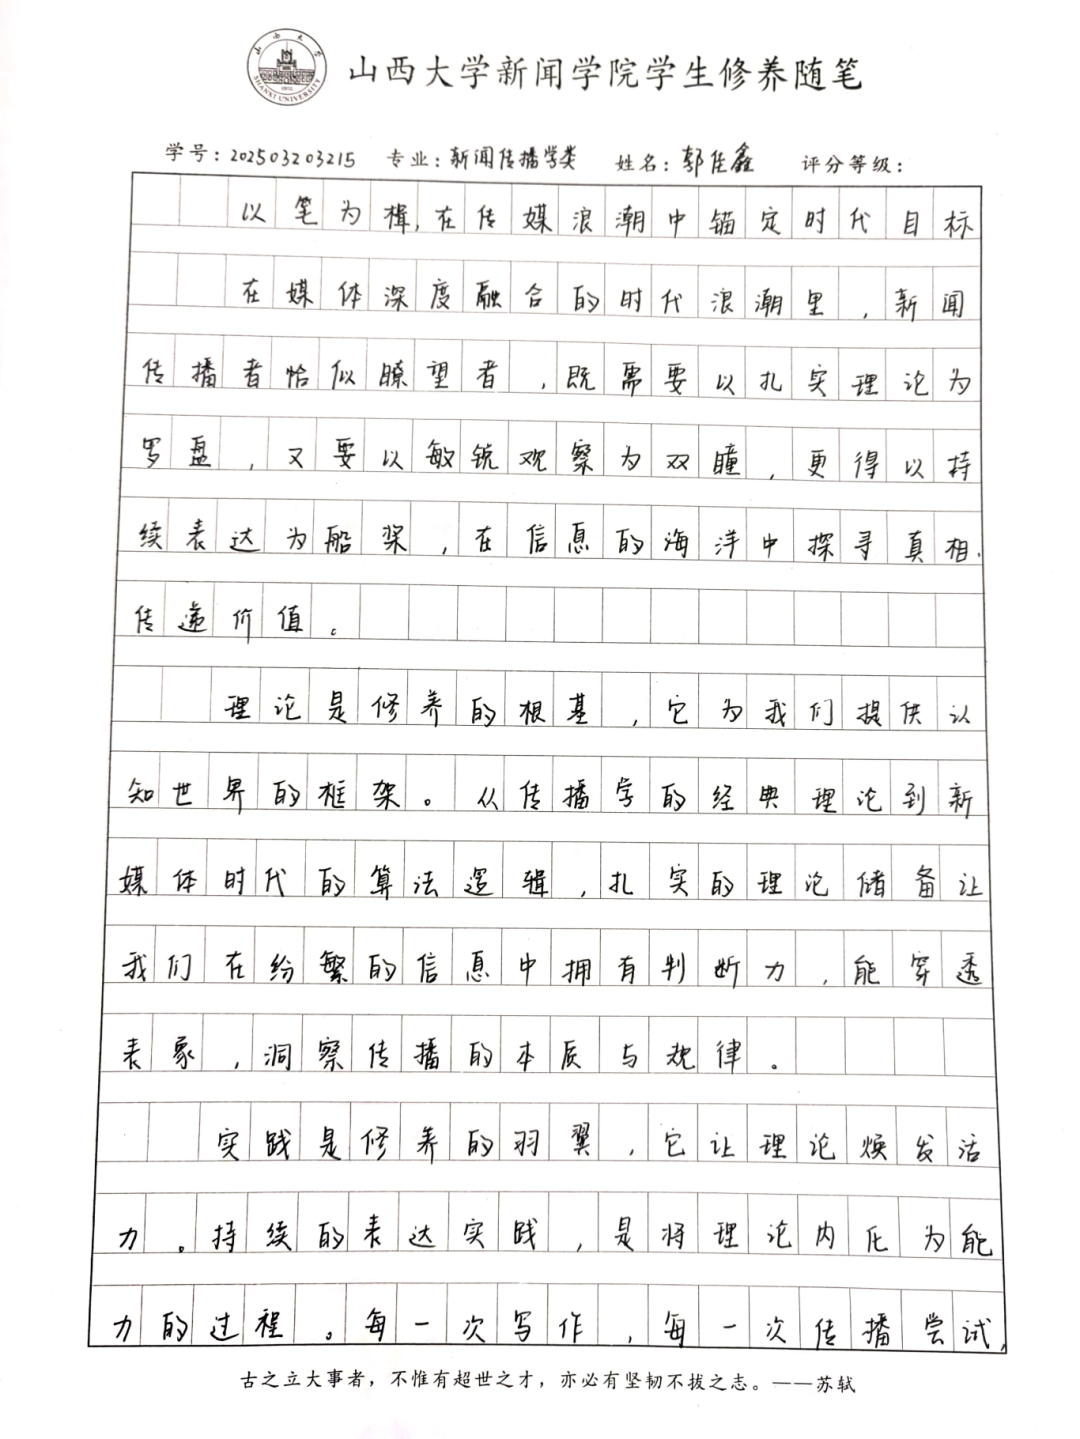 山西大学
SHANXI UNIVERSITY
1902
山西大学新闻学院学生修养随笔
学号：202503203215 专业：新闻传播学类 姓名：郭佳鑫 评分等级：
以笔为楫，在传媒浪潮中锚定时代目标
在媒体深度融合的时代浪潮里，新闻
传播者恰似瞭望者，既需要以扎实理论为
罗盘，又要以敏锐观察为双瞳，更得以持
续表达为船桨，在信息的海洋中探寻真相、
传递价值。
理论是修养的根基，它为我们提供认
知世界的框架。从传播学的经典理论到新
媒体时代的算法逻辑，扎实的理论储备让
我们在纷繁的信息中拥有判断力，能穿透
表象，洞察传播的本质与规律。
实践是修养的羽翼，它让理论焕发活
力。持续的表达实践，是将理论内化为能
力的过程。每一次写作，每一次传播尝试，
古之立大事者，不惟有超世之才，亦必有坚韧不拔之志。——苏轼